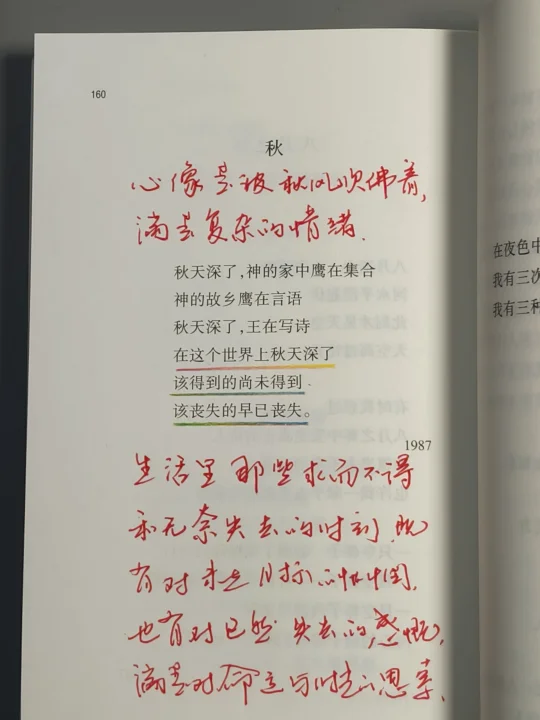 160
秋
心像是被秋风吹拂着,
满是复杂的情绪.
秋天深了,神的家中鹰在集合
神的故乡鹰在言语
秋天深了,王在写诗
在这个世界上秋天深了
该得到的尚未得到
该丧失的早已丧失。
1987
生活里那些求而不得
和无奈失去的时刻,既
有对未达目标的怅惘,
也有对已然失去的感慨,
满是对命运与时光的思索.
在夜色中
我有三次
我有三种